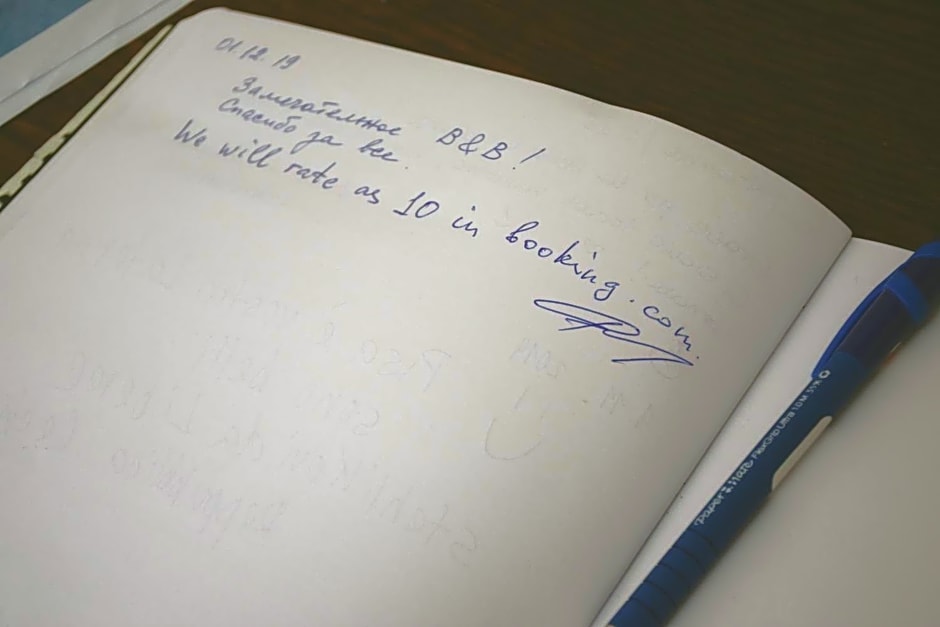 01.12.19
Замечательное B&B!
Спасибо за все.
We will rate as 10 in booking.com.
Paper Mate FlexGrip Ultra 1.0 M